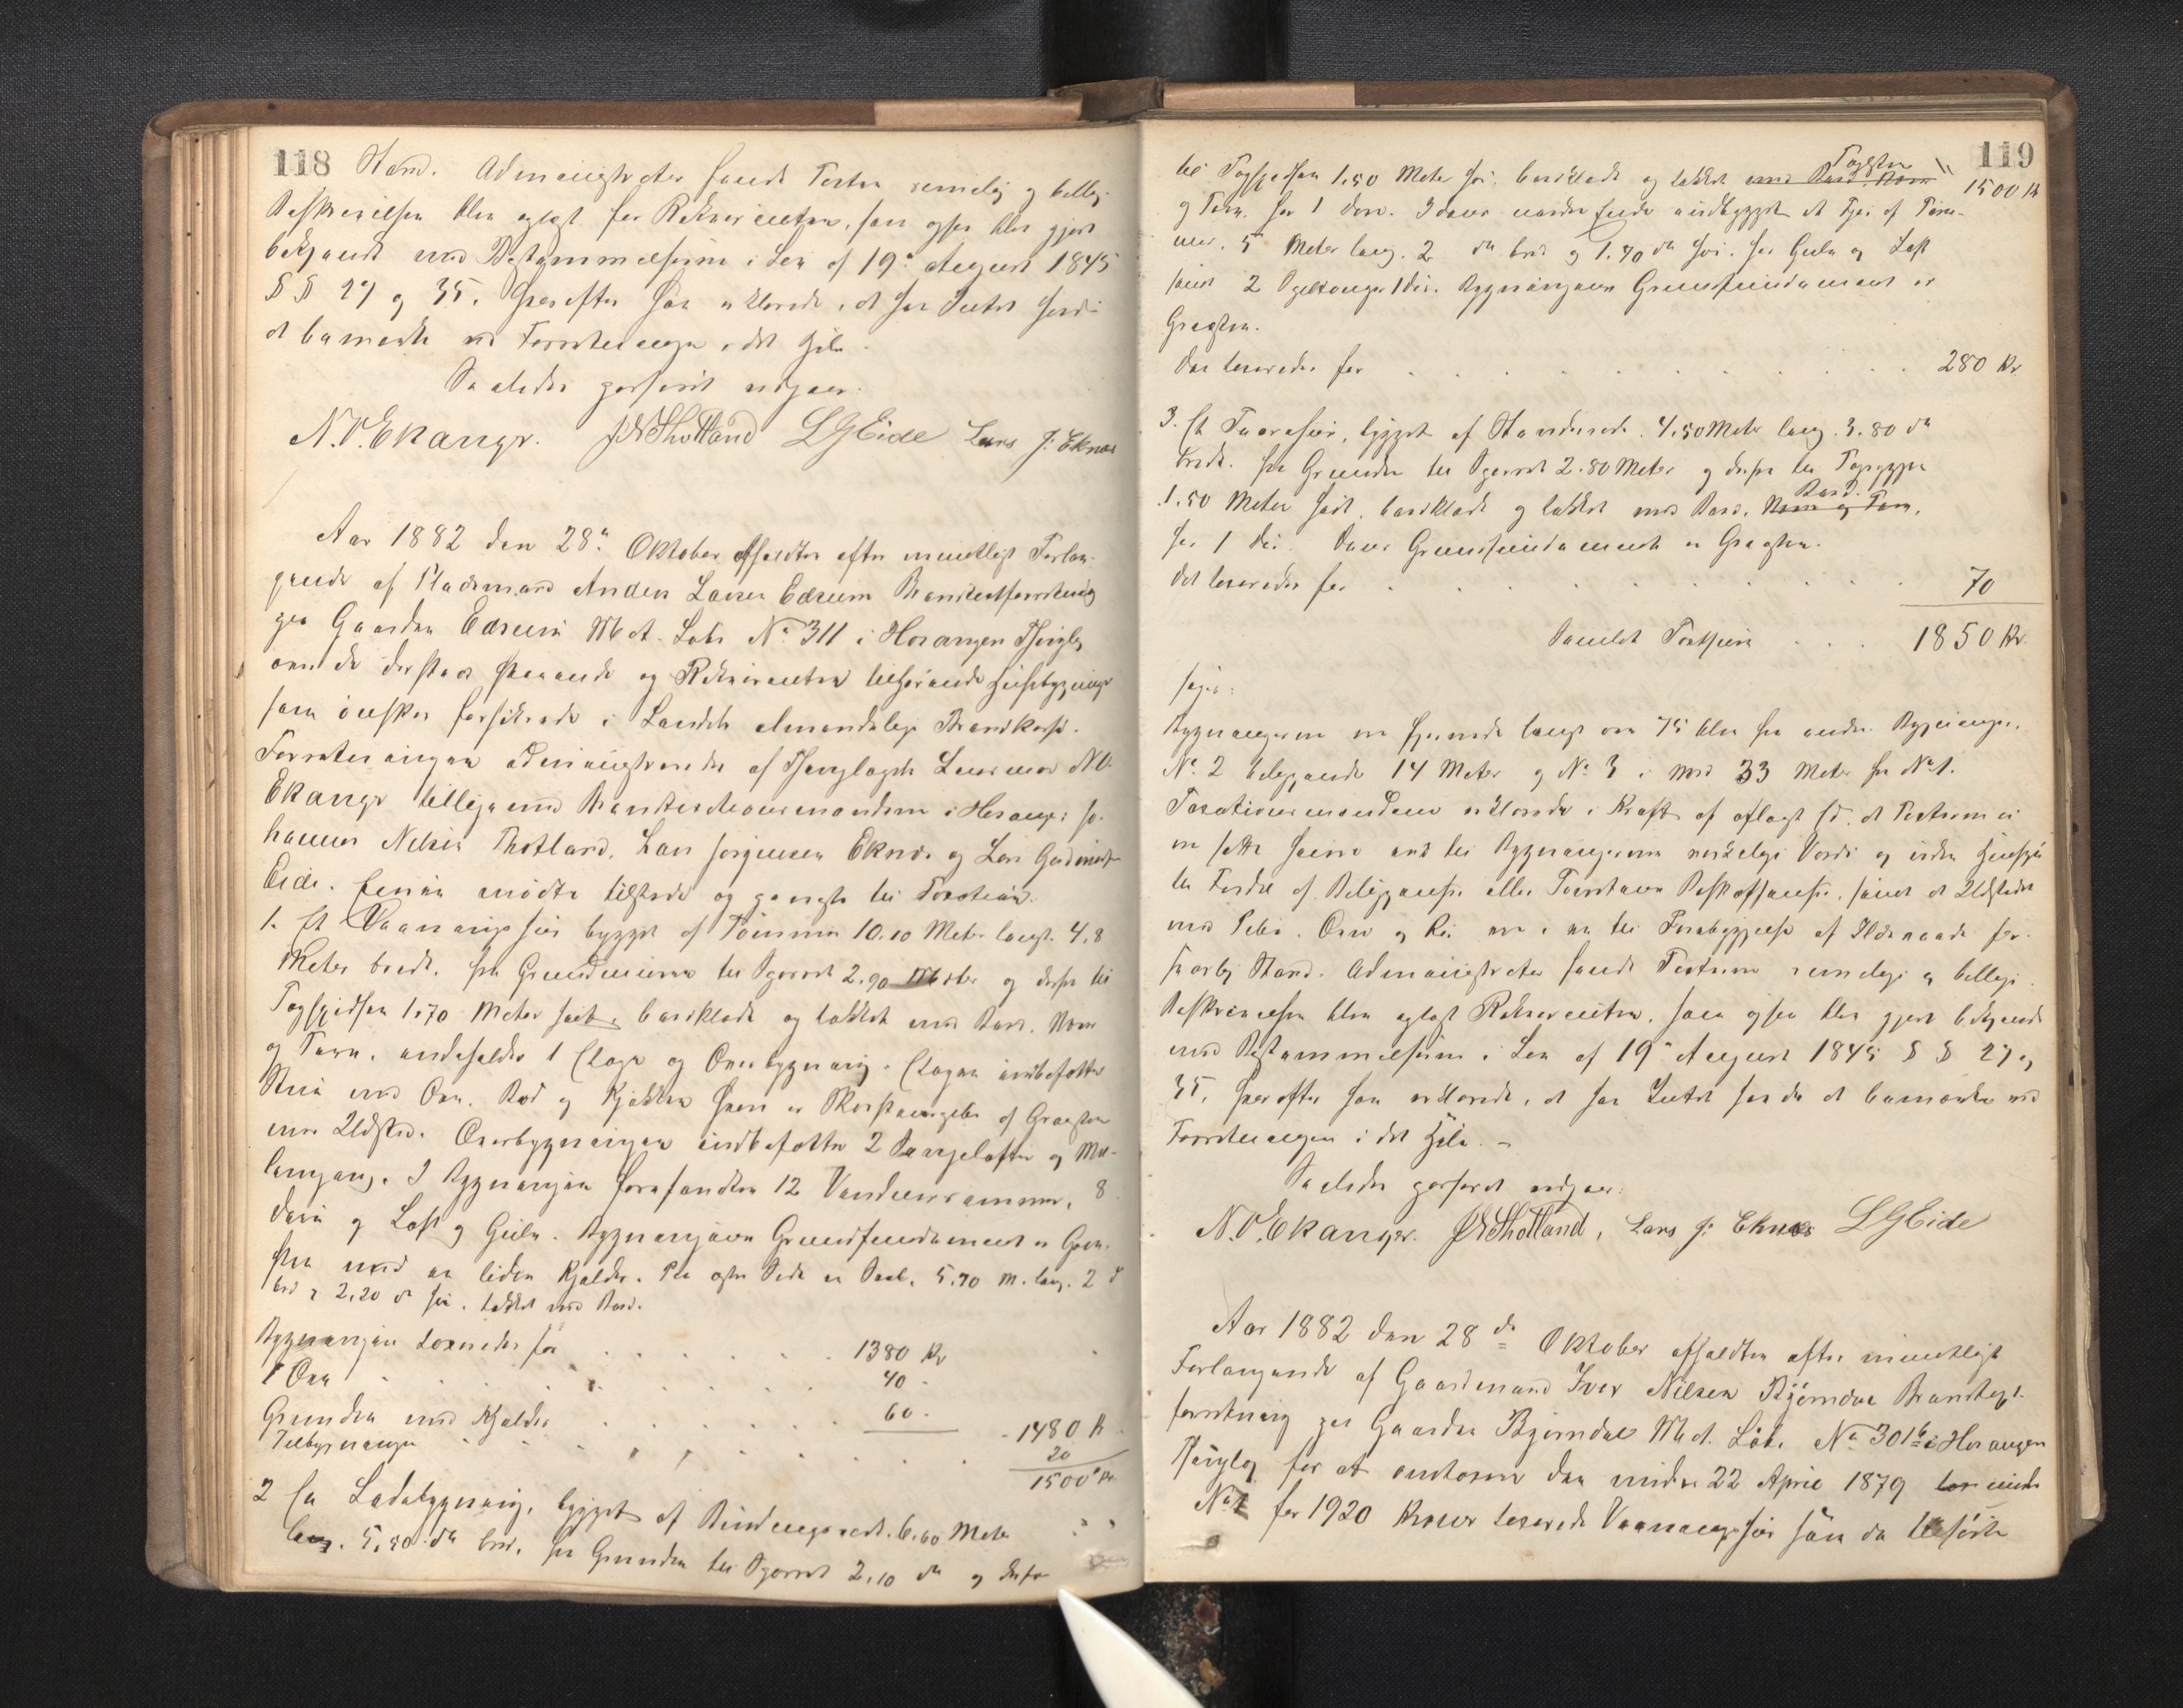 118
Stand. Administrator fandt Taxten rimelig og billig.
Beskrivelsen blev oplæst for Rekvirenten, som ogsaa blev gjort
bekjendt med Bestemmelserne i Lov af 19de August 1845
§ § 27 og 35, hvorefter han erklærede, at han Intet havde
at bemærke ved Forretningen i det Hele.
Saaledes passeret udgaar.
N.O. Ekanger. JNShotland LGEide Lars J. Eknæs
Aar 1882 den 28de Oktober afholdtes efter mundtligt Forlan-
gende af Pladsmand Anders Larsen Edseim Brandtaxtforretning
paa Gaarden Edseim Mat. Løbe No 311 i Hosanger Thinglag
over de dersteds staaende og Rekvirenten tilhørende Huusbygninger
som ønskes forsikrede i Landets almindelige Brandkasse.
Forretningen administreredes af Thinglagets Lensmand N.O.
Ekanger tilligemed Brandtaxationsmændene i Hosanger Jo-
hannes Nilsen Thotland, Lars Jørgensen Eknæs og Lars
Eide. Eieren mødte tilstede og paaviste til Taxation.
1. Et Vaaningshuus bygget af Tømmer 10.10 Meter langt. 4,8
Meter bredt. fra Grundmuren til Sperret 2.90 Meter og derfra til
Tagspidsen 1.70 Meter høit, bordklædt og tækket med Bord, Næver
og Torv, indeholder 1 Etage og Overbygning. Etagen indbefatter
Stue med Ovn, Bod og Kjøkken hvori er Skorsteenspibe af Graasten
med Ildsted. Overbygningen indbefatter 2 Sengelofter og Mel-
lemgang. I Bygningen forefandtes 12 Vinduesrammer, 8
Døre og Loft og Gulv. Bygningens Grundfundament er Graa-
sten med en liden Kjelder. Paa Side er Sval, 5.70 M. lang. 2 d
bred og 2,20 d høi. tækket med Bord.
Bygningen taxeredes for . . . . . . 1380 Kr
1 Ovn . . . . . . 40 -
Grunden med Kjelder . . . . . . 60 -
1480 K
Tilbygningen . . . . . . 20
1500 Kr
2 En Ladebygning, bygget af Bindingsværk. 6.60 Meter
lang. 5,80 do bred, fra Grunden til Sperret 2,10 do og derfra
119
til Tagspidsen 1.50 Meter høi, bordklædt og tækket med Bord, Næver Tagsten
1500 Kr
og Torv. har 1 Dør. I denne indbygget et Fjøs af Tøm-
mer. 5 Meter lang. 2 do bred og 1.70 do høi. har Gulv og Loft
samt 2 1 Dør. Bygningens Grundfundament er
Graasten.
Den taxeredes for . . . . . . 280 Kr
3. Et Tørrehuus, bygget af Stavverk. 4.50 Meter lang. 3.80 do
bredt. fra Grunden til Sperret 2.80 Meter og derfra til
1.50 Meter høit, bordklædt og tækket med Bord, Næver og Torv.
Bord.
har 1 Dør. Dens Grundfundament er Graasten.
Det taxeredes for . . . . . . 70
Samlet Taxtsum . . . 1850 Kr.
siger:
Bygningerne ere fjernede langt over 75 Alen fra andre Bygninger.
No 2 beliggende 14 Meter og No 3 i Nord 33 Meter fra No 1.
Taxationsmændene erklærede i Kraft af aflagt Ed, at Taxterne ei
ere satte høiere end til Bygningernes virkelige Værdi og uden Hensyn
til Fordel af Beliggenhed eller Beskaffenhed, samt at Ildstedet
med Pibe, Ovn og Rør ere i en til Forebyggelse af Ildsvaade for-
svarlig Stand. Administrator fandt Taxterne rimelige og billige.
Beskrivelsen blev oplæst Rekvirenten, som ogsaa blev gjort bekjendt
med Bestemmelserne i Lov af 19de August 1845 § § 27 og
35, hvorefter han erklærede, at han Intet havde at bemærke ved
Forretningen i det Hele. -
Saaledes passeret udgaar:
N.O. Ekanger. JNShotland, Lars J. Eknæs LGEide
Aar 1882 den 28de Oktober afholdtes efter mundtligt
Forlangende af Gaardmand Iver Nilsen Bjørndal Brandtaxt-
forretning paa Gaarden Bjørndal Mat. Løbe No 301b i Hosanger
Thinglag for at omtaxere den under 22 April 1879 under
No 1 for 1920 Kroner taxerede Vaaningshuus som da tilhørte